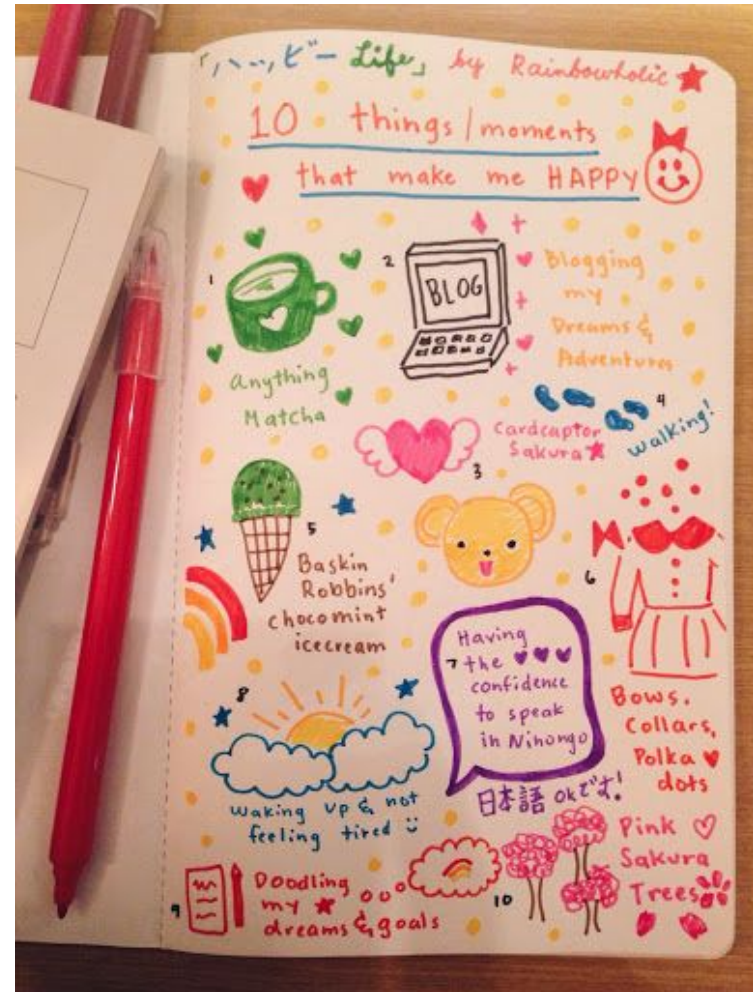 「ハッピー Life」 by Rainbowholic
10 things/moments
that make me HAPPY
1
Anything
Matcha
2
BLOG
Blogging
my
Dreams &
Adventures
3
Cardcaptor
Sakura
4
Walking!
5
Baskin
Robbins'
chocomint
icecream
6
Bows,
Collars,
Polka
dots
7
Having
the
confidence
to speak
in Nihongo
日本語 okです!
8
Waking up & not
feeling tired
9
Doodling
my
dreams & goals
10
Pink
Sakura
Trees